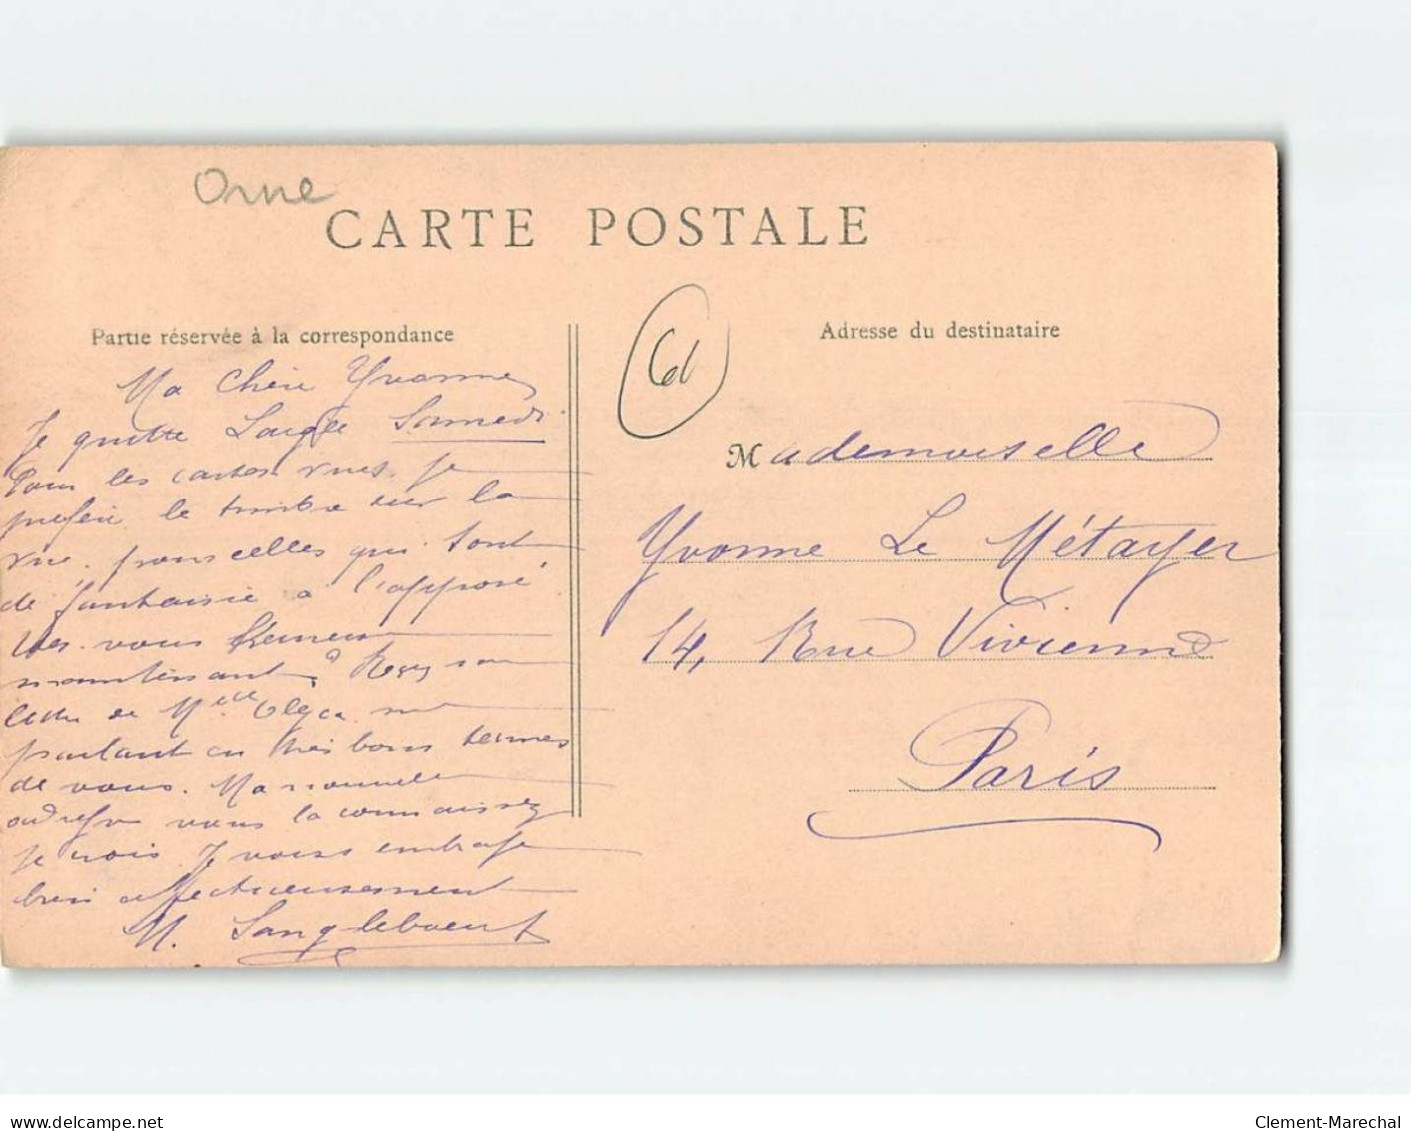 Orne
CARTE POSTALE
Partie réservée à la correspondance
Ma Chère Yvonne
Je quitte Laigle Samedi
Pour les cartes vues je
préfère le timbre sur la
vue. pour celles qui sont
de fantaisie a l'opposé
vous
maintenant, ? Reçu une
lettre de Melle Olga me
parlant en très bons termes
de vous. Ma nouvelle
adresse vous la connaissez
je crois. Je vous embrasse
bien affectueusement
M. Sangleboeuf
61
Adresse du destinataire
Mademoiselle
Yvonne Le Métayer
14, Rue Vivienne
Paris
delcampe.net
Clement-Marechal